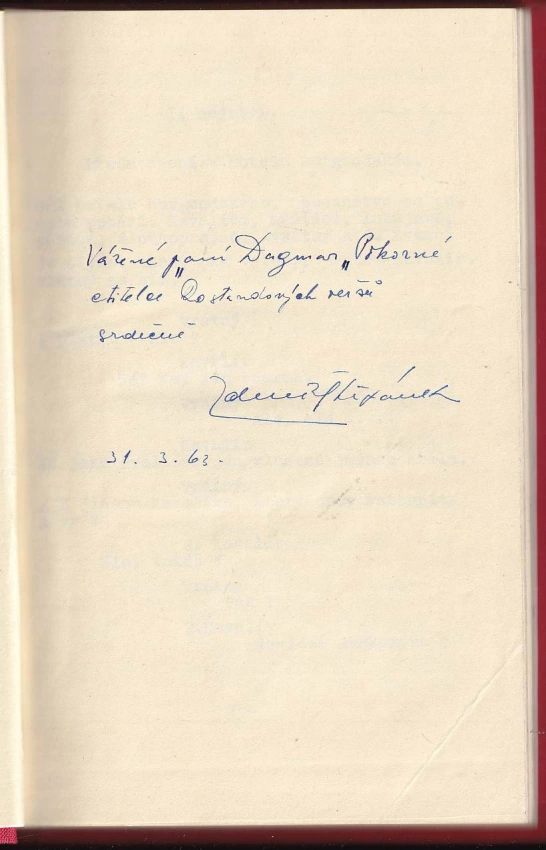 Vážené paní Dagmar „Pokorné
ctitelce Rostandových veršů
srdečně
Zdeněk Štěpánek
31. 3. 63.